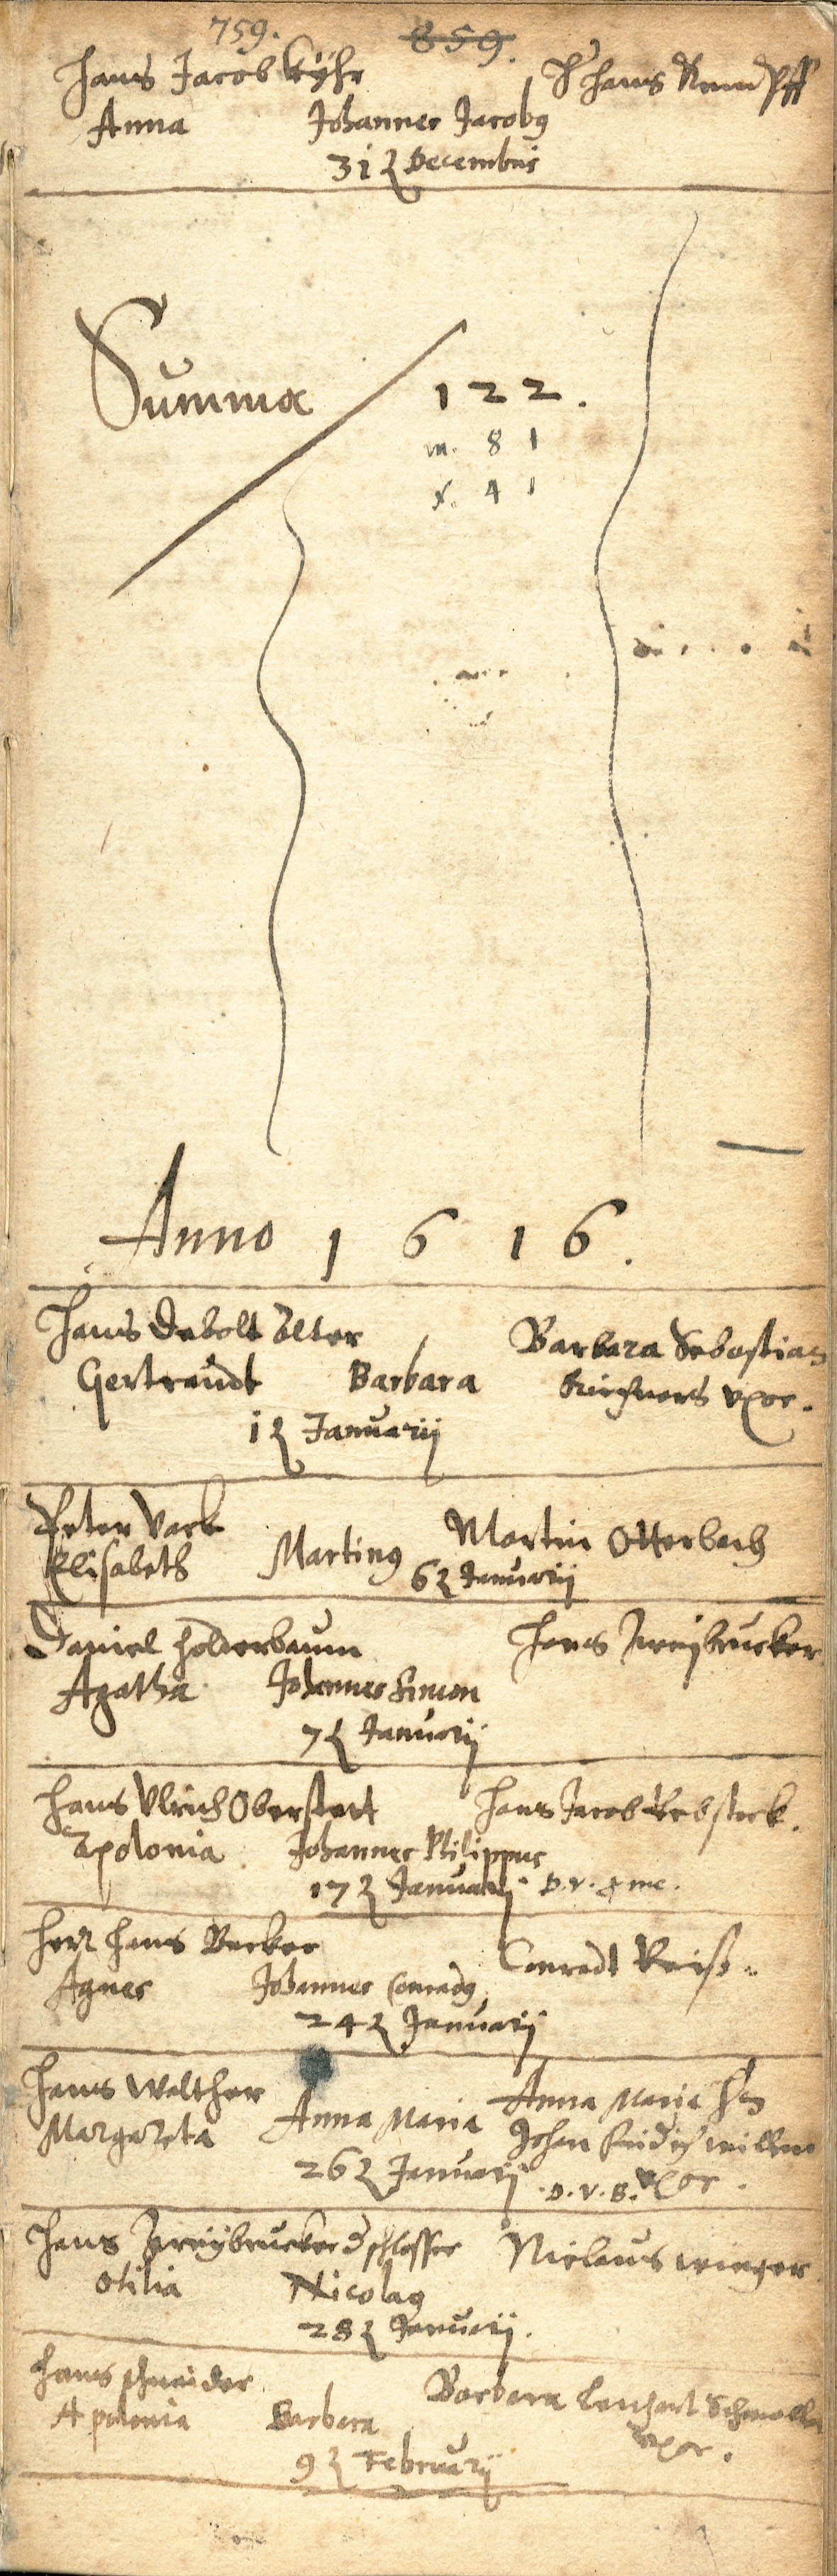 759. 859.
Hans Jacob Kÿhr
H Hans
Anna Johannes Jacobus
31 Decembris
Summa 122.
m. 81
f. 41
Anno 1616.
Hans Debolt Alter Barbara Sebastian
Gertraudt Barbara Kirschners vxor.
1 Januarij
Peter Vack Martin Otterbach
Elisabeth Martinus
6 Januarij
Daniel Holderbaum Hans Zweÿbrucker
Agatha Johannes Simon
7 Januarij
Hans Vlrich Oberstett Hans Jacob Rebstock.
Apolonia Johannes Philippus
17 Januarij D.V. me.
Herr Hans Becker Conradt Reiß.
Agnes Johannes Conradus
24 Januarij
Hans Walther Anna Maria H
Margareta Anna Maria Johan
26 Januarij D.V.B. vxor.
Hans Zweÿbrucker d schlosser Niclaus wieger
Otilia Nicolaus
28 Januarij.
Hans schneider Barbara Lenhart
Apolonia Barbara vxor.
9 Februarij